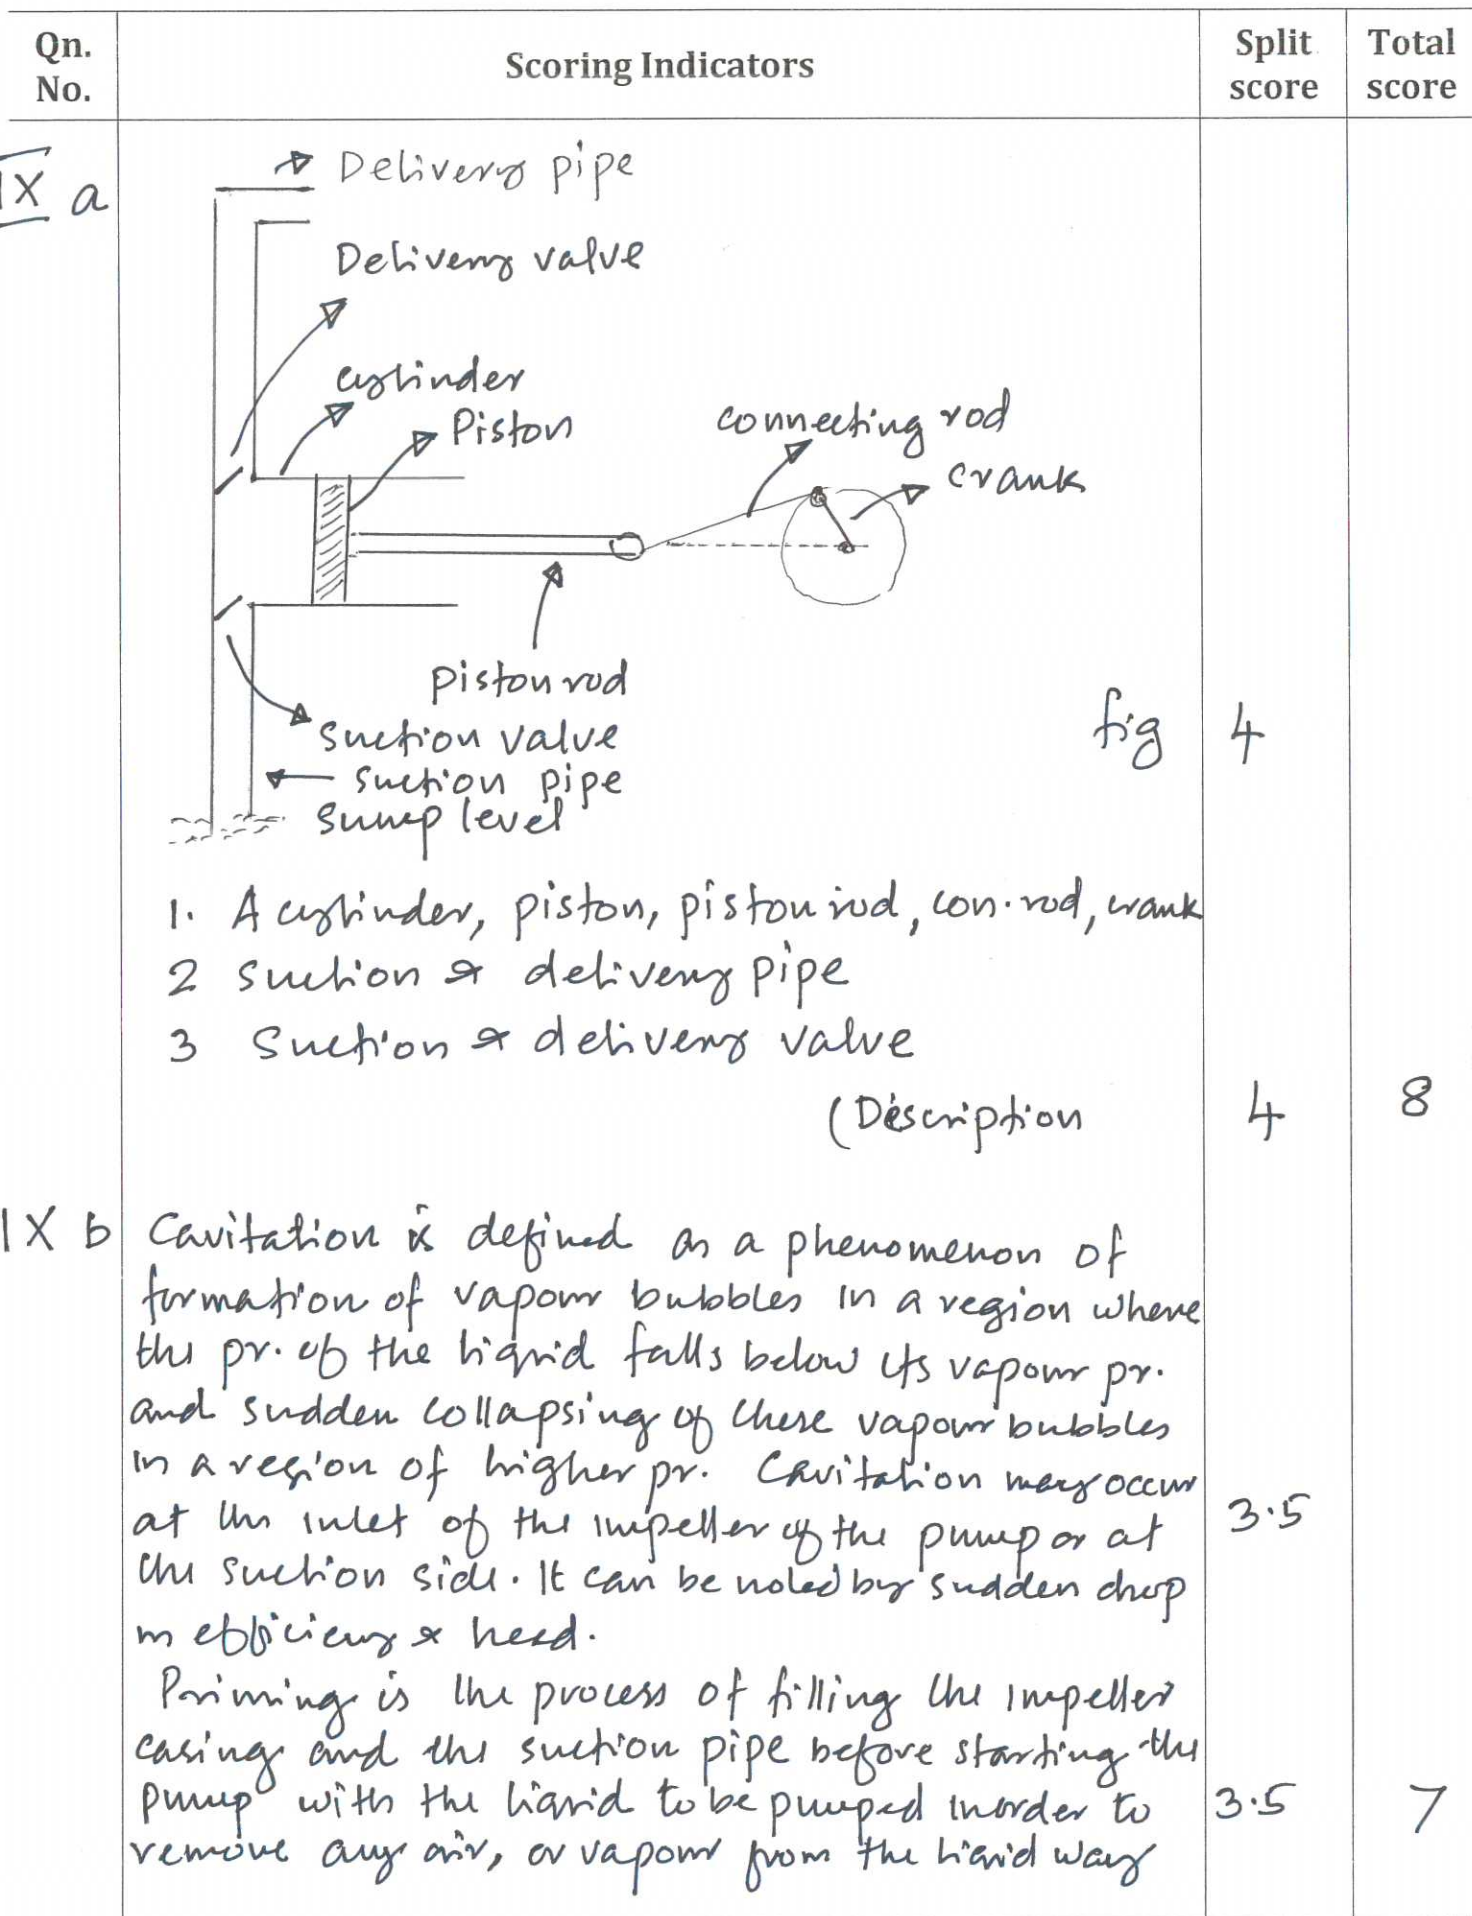 Qn. No. Scoring Indicators Split score Total score
IX a
Delivery pipe
Delivery valve
cylinder
Piston
connecting rod
crank
Piston rod
Suction valve
Suction pipe
Sump level
fig 4
1. A cylinder, piston, piston rod, con. rod, crank
2 Suction & delivery pipe
3 Suction & delivery valve
(Description 4 8
IX b Cavitation is defined as a phenomenon of
formation of vapour bubbles in a region where
the pr. of the liquid falls below its vapour pr.
and sudden collapsing of these vapour bubbles
in a region of higher pr. Cavitation may occur
at the inlet of the impeller of the pump or at 3.5
the suction side. It can be noted by sudden drop
in efficiency & head.
Priming is the process of filling the impeller
casing and the suction pipe before starting the
pump with the liquid to be pumped inorder to 3.5 7
remove any air, or vapour from the liquid way